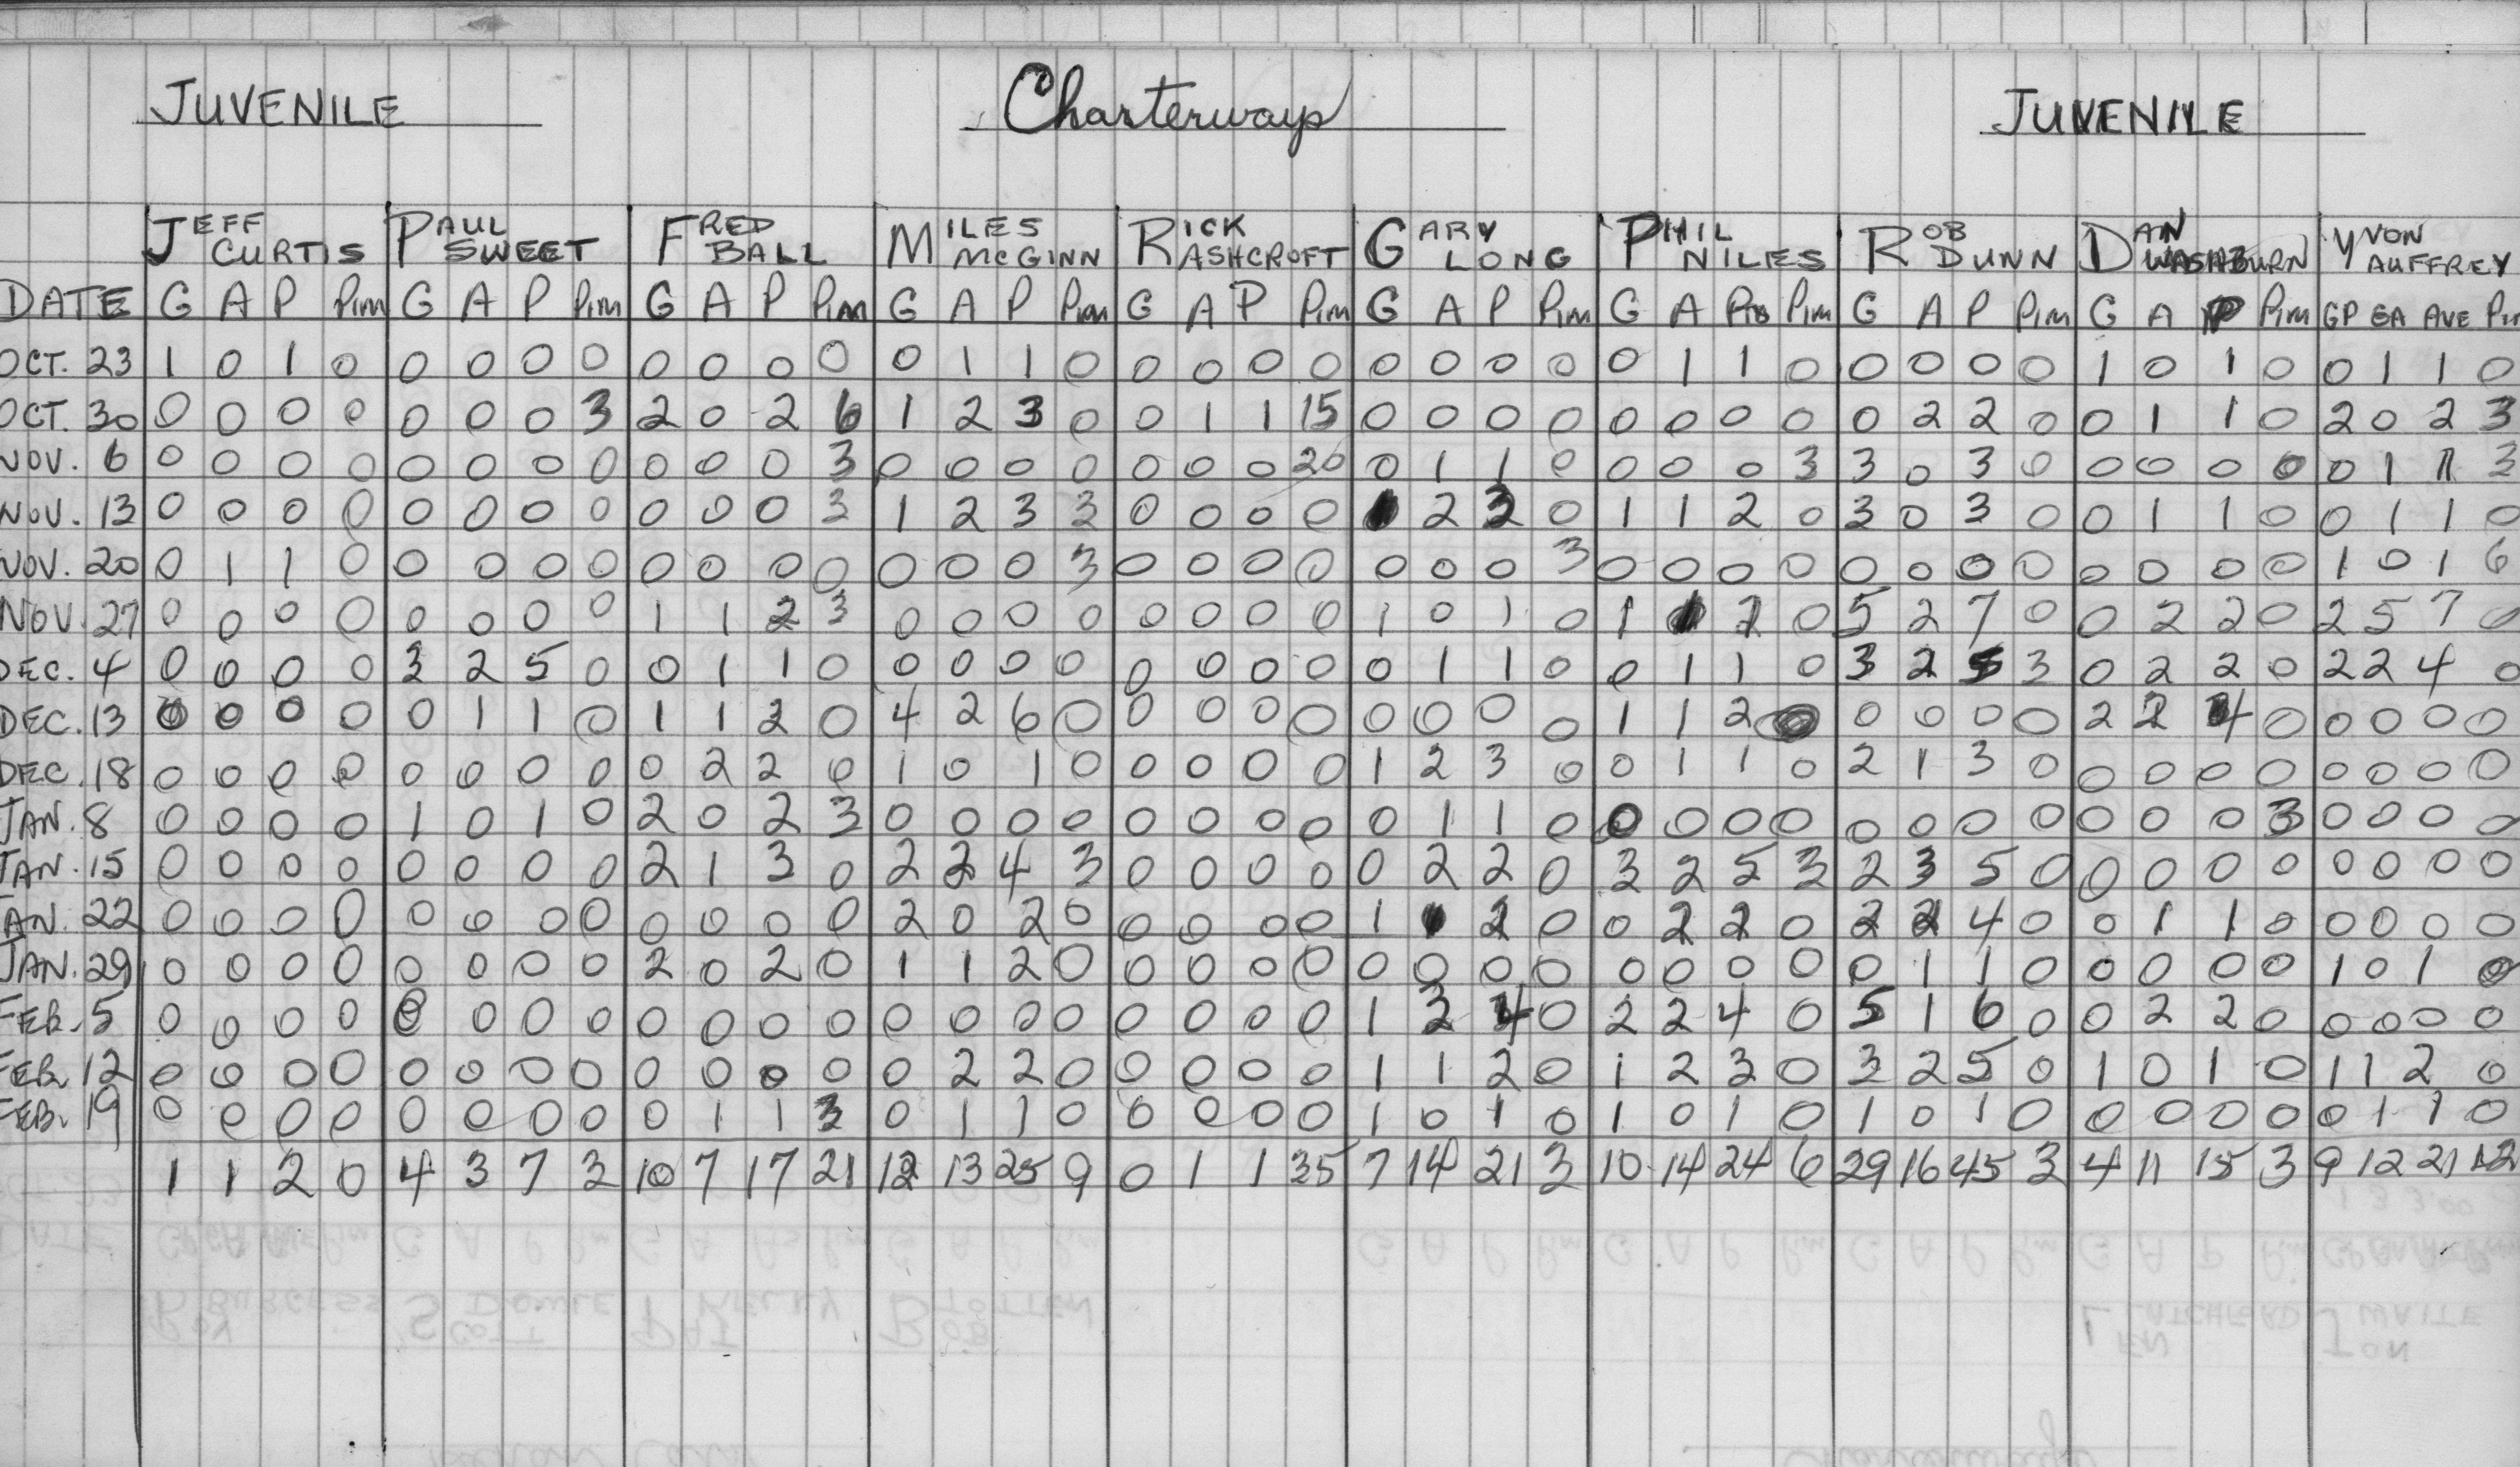 JUVENILE Charterways JUVENILE
JEFF CURTIS PAUL SWEET FRED BALL MILES McGINN RICK ASHCROFT GARY LONG PHIL NILES ROB DUNN DAN WASHBURN YVON AUFFREY
DATE G A P Pim G A P Pim G A P Pim G A P Pim G A P Pim G A P Pim G A Pts Pim G A P Pim G A P Pim GP GA AVE Pim
OCT. 23 1 0 1 0 0 0 0 0 0 0 0 0 0 1 1 0 0 0 0 0 0 0 0 0 0 1 1 0 0 0 0 0 1 0 1 0 0 1 1 0
OCT. 30 0 0 0 0 0 0 0 3 2 0 2 6 1 2 3 0 0 1 1 15 0 0 0 0 0 0 0 0 0 2 2 0 0 1 1 0 2 0 2 3
NOV. 6 0 0 0 0 0 0 0 0 0 0 0 3 0 0 0 0 0 0 0 20 0 1 1 0 0 0 0 3 3 0 3 0 0 0 0 0 0 1 1 3
NOV. 13 0 0 0 0 0 0 0 0 0 0 0 3 1 2 3 3 0 0 0 0 2 3 0 1 1 2 0 3 0 3 0 0 1 1 0 0 1 1 0
NOV. 20 0 1 1 0 0 0 0 0 0 0 0 0 0 0 0 3 0 0 0 0 0 0 0 3 0 0 0 0 0 0 0 0 0 0 0 0 1 0 1 6
NOV. 27 0 0 0 0 0 0 0 0 1 1 2 3 0 0 0 0 0 0 0 0 1 0 1 0 1 1 2 0 5 2 7 0 0 2 2 0 2 5 7 0
DEC. 4 0 0 0 0 3 2 5 0 0 1 1 0 0 0 0 0 0 0 0 0 0 1 1 0 0 1 1 0 3 2 5 3 0 2 2 0 2 2 4 0
DEC. 13 0 0 0 0 0 1 1 0 1 1 2 0 4 2 6 0 0 0 0 0 0 0 0 0 1 1 2 0 0 0 0 0 2 2 4 0 0 0 0 0
DEC. 18 0 0 0 0 0 0 0 0 0 2 2 0 1 0 1 0 0 0 0 0 1 2 3 0 0 1 1 0 2 1 3 0 0 0 0 0 0 0 0 0
JAN. 8 0 0 0 0 1 0 1 0 2 0 2 3 0 0 0 0 0 0 0 0 0 1 1 0 0 0 0 0 0 0 0 0 0 0 0 3 0 0 0 0
JAN. 15 0 0 0 0 0 0 0 0 2 1 3 0 2 2 4 3 0 0 0 0 0 2 2 0 3 2 5 3 2 3 5 0 0 0 0 0 0 0 0 0
JAN. 22 0 0 0 0 0 0 0 0 0 0 0 0 2 0 2 0 0 0 0 0 1 1 2 0 0 2 2 0 2 2 4 0 0 1 1 0 0 0 0 0
JAN. 29 0 0 0 0 0 0 0 0 2 0 2 0 1 1 2 0 0 0 0 0 0 0 0 0 0 0 0 0 0 1 1 0 0 0 0 0 1 0 1 0
FEB. 5 0 0 0 0 0 0 0 0 0 0 0 0 0 0 0 0 0 0 0 0 1 3 4 0 2 2 4 0 5 1 6 0 0 2 2 0 0 0 0 0
FEB. 12 0 0 0 0 0 0 0 0 0 0 0 0 0 2 2 0 0 0 0 0 1 1 2 0 1 2 3 0 3 2 5 0 1 0 1 0 1 1 2 0
FEB. 19 0 0 0 0 0 0 0 0 0 1 1 3 0 1 1 0 0 0 0 0 1 0 1 0 1 0 1 0 1 0 1 0 0 0 0 0 0 1 1 0
1 1 2 0 4 3 7 3 10 7 17 21 12 13 25 9 0 1 1 35 7 14 21 3 10 14 24 6 29 16 45 3 4 11 15 3 9 12 21 12